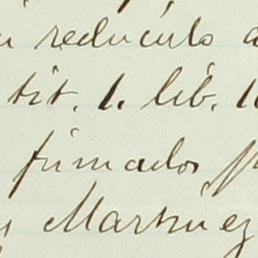 reducirlo a
tit. 1. lib.
firmados
Martinez